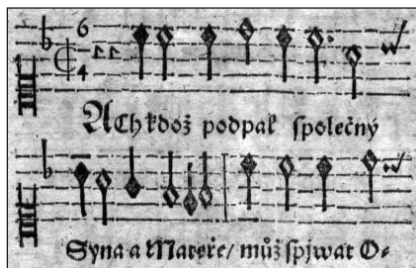 6
4
Ach kdož podpal společný
Syna a Mateře/ můž spjwat O-